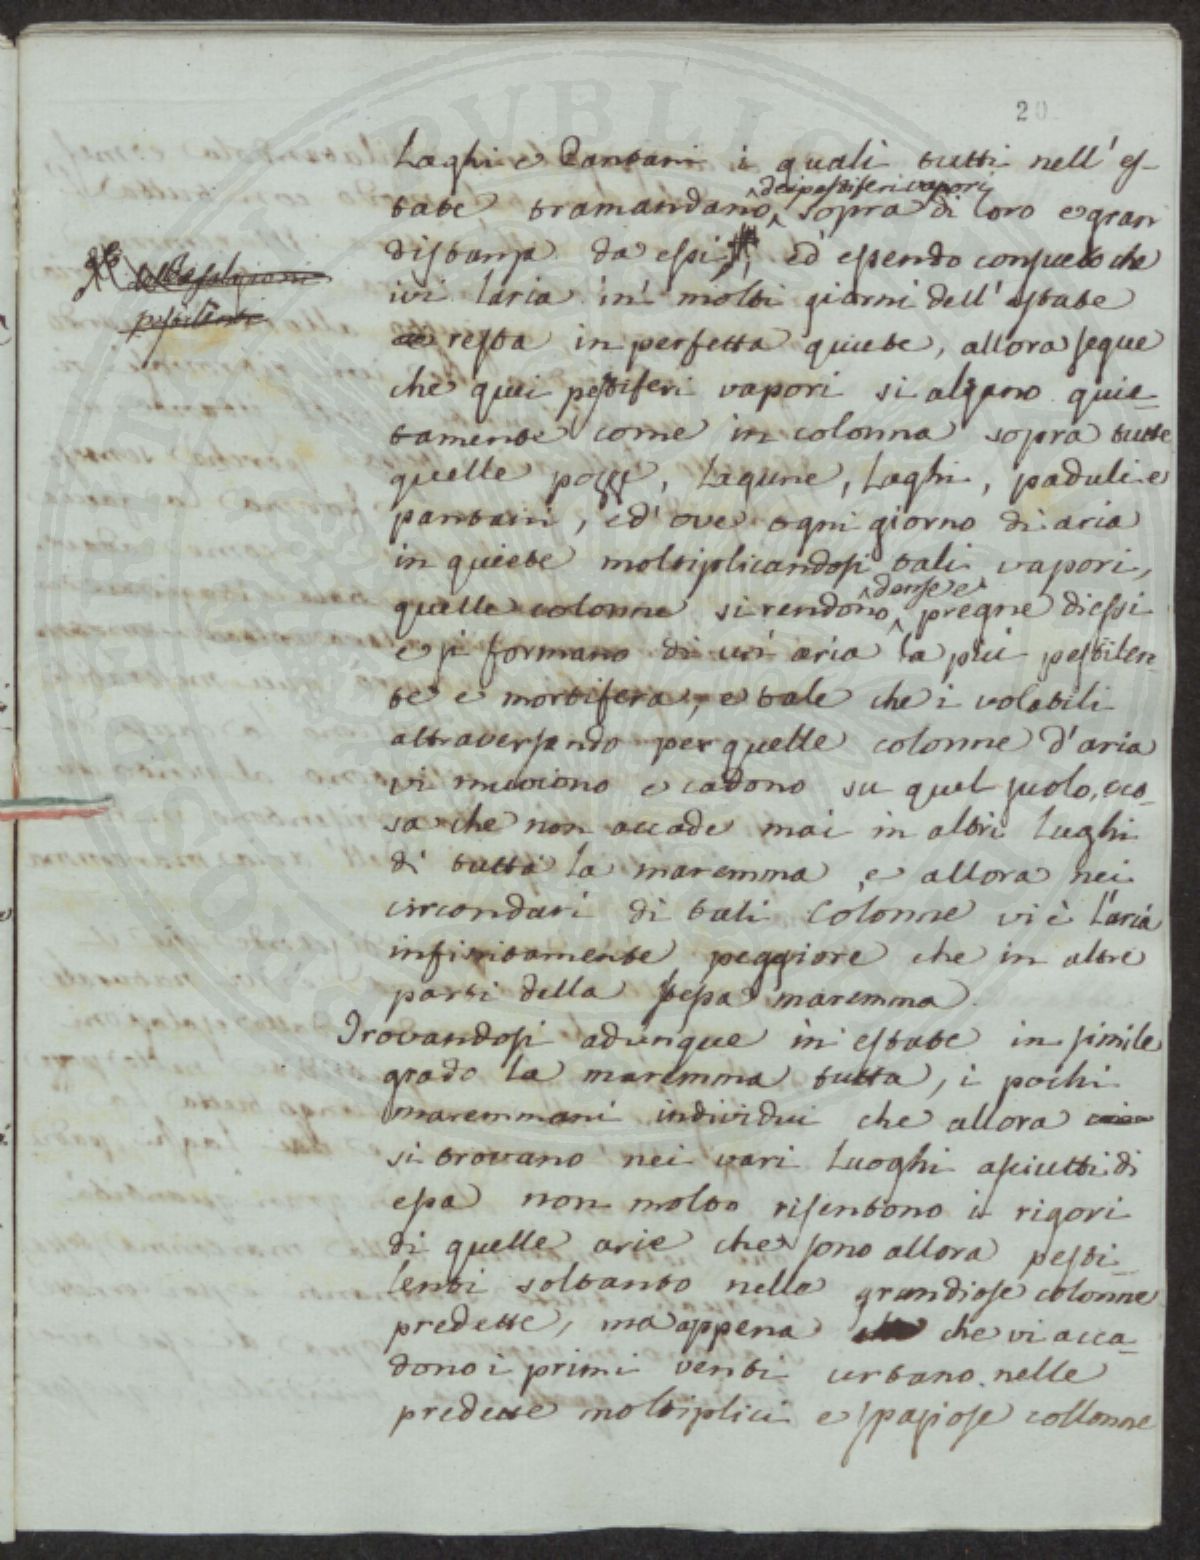 20
Laghi e Pantani i quali tutti nell' es-
dei pestiferi vapori
tate tramandano sopra di loro e gran
distanza da essi, ed essendo consueto che
ivi laria in molti giorni dell' estate
resta in perfetta quiete, allora segue
che quei pestiferi vapori si alzano quie-
tamente come in colonna sopra tutte
quelle pozze, Lagune, Laghi, paduli e
pantani, ed' ove ogni giorno di aria
in quiete moltiplicandosi tali vapori,
dense e
quelle colonne si rendono pregne di essi
e si formano di un' aria la più pestilen
te e mortifera, e tale che i volatili
attraversando per quelle colonne d'aria
vi muoiono e cadono su quel suolo, co-
sa che non accade mai in altri lughi
di tutta la maremma, e allora nei
circondari di tali Colonne vi è l'aria
infinitamente peggiore che in altre
parti della stessa maremma.
Trovandosi adunque in estate in simile
grado la maremma tutta, i pochi
maremmani individui che allora
si trovano nei vari Luoghi asciutti di
essa non molto risentono i rigori
di quelle arie che sono allora pesti-
lenti soltanto nelle grandiose colonne
predette, ma appena che vi acca-
dono i primi venti urtano nelle
predette moltiplici e spaziose collonne
esalazioni
pestilenti